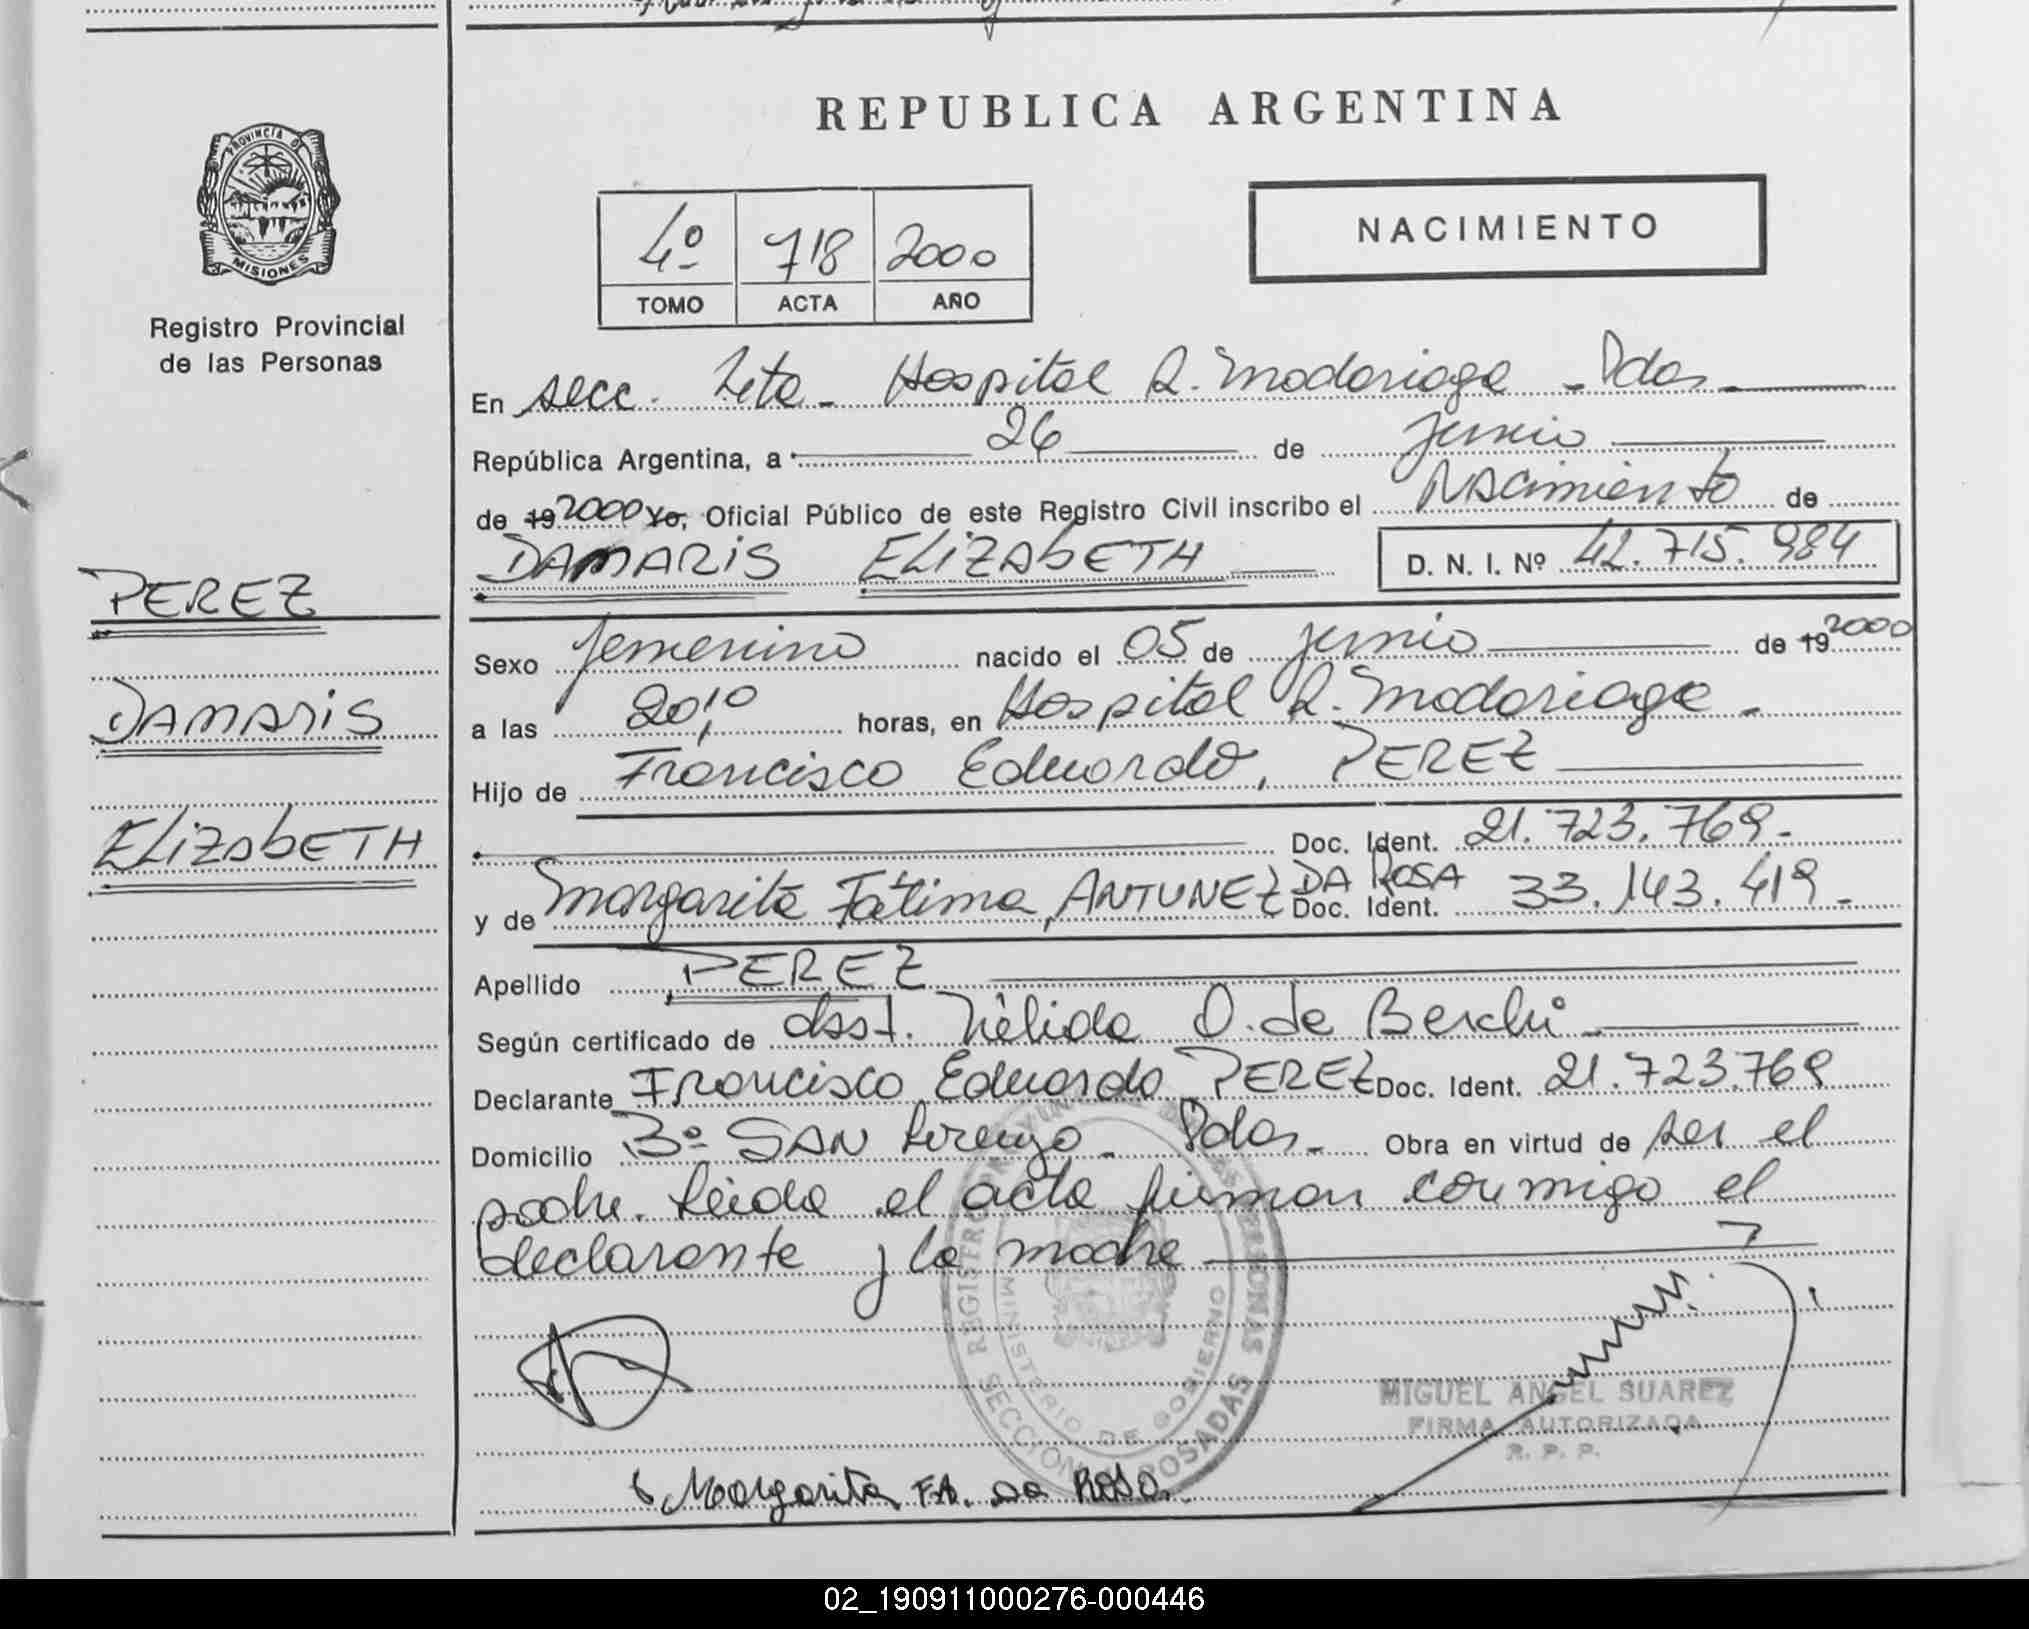 REPUBLICA ARGENTINA
PROVINCIA DE
MISIONES
Registro Provincial
de las Personas
4º 718 2000
TOMO ACTA AÑO
NACIMIENTO
En secc. Hospital R. Madariaga - Pdas -
República Argentina, a 26 de junio
de 19 2000 Yo, Oficial Público de este Registro Civil inscribo el Nacimiento de
DAMARIS ELIZAbETH D. N. I. Nº 42.715.984
PEREZ
DAMARIS
ELIZAbETH
Sexo femenino nacido el 05 de junio de 19 2000
a las 20,10 horas, en Hospital R. Madariaga -
Hijo de Francisco Eduardo, PEREZ
Doc. Ident. 21.723.769.-
y de Margarita Fátima, ANTUNEZ DA ROSA Doc. Ident. 33.143.419.-
Apellido PEREZ
Según certificado de Nélida O. de
Declarante Francisco Eduardo PEREZ Doc. Ident. 21.723.769
Domicilio Bº SAN Lorenzo - Pdas - Obra en virtud de ser el
padre. Leida el acta firman conmigo el
declarante y la madre
REGISTRO PROVINCIAL DE LAS PERSONAS
MINISTERIO DE GOBIERNO
SECCION POSADAS
MIGUEL ANGEL SUAREZ
FIRMA AUTORIZADA
R. P. P.
Margarita FA. Da ROSA.
02_190911000276-000446